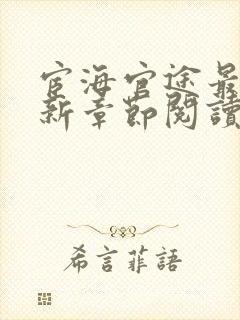 宦海官途最
新章節閱讀
希言菲語